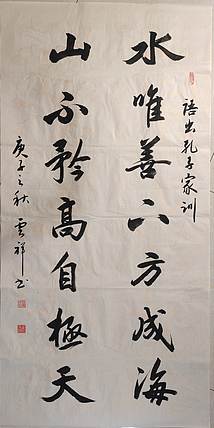 語出孔子家訓
水唯善下方成海
山不矜高自極天
庚子之秋 雲祥书